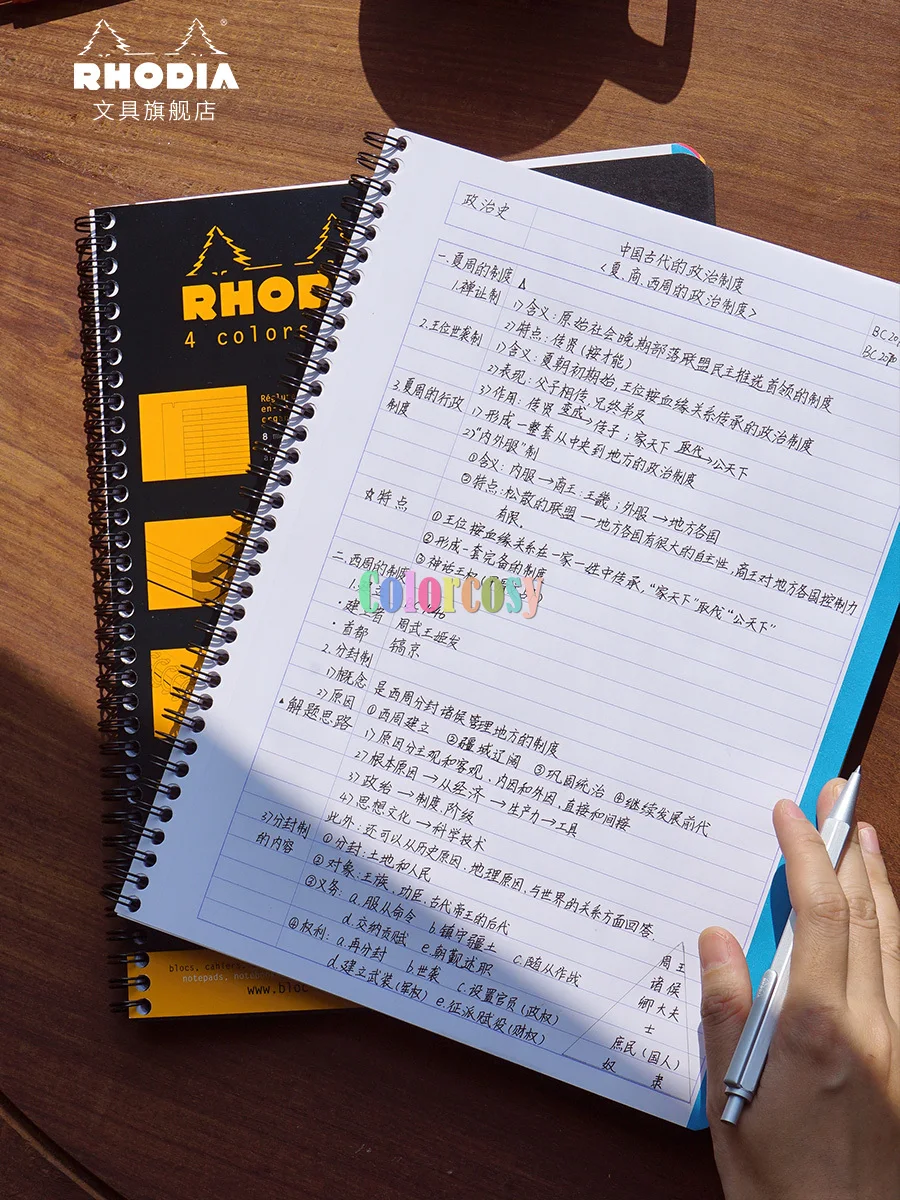 RHODIA
文具旗舰店
RHOD
4 colors
blocs, cahiers
notepads, note
www.bloc
Colorcosy
政治史
中国古代的政治制度
<夏、商、西周的政治制度>
BC 20
BC 2070
一.夏周的制度 △
1.禅让制
1)含义:原始社会晚期部落联盟民主推选首领的制度
2)特点:传贤(按才能)
2.王位世袭制
1)含义:夏朝初期始,王位按血缘关系传承的政治制度
2)表现:父子相传、兄终弟及
3)作用:传贤 变成→传子;家天下 取代→公天下
3.夏周的行政制度
1)形成一整套从中央到地方的政治制度
2)"内外服"制
①含义:内服→商王:王畿;外服→地方各国
②特点:松散的联盟—地方各国有很大的自主性,商王对地方各国控制力有限。
☆特点
①王位按血缘关系在一家一姓中传承,"家天下"取代"公天下"
②形成一套完备的制度
③神话王权
二.西周的制度
·建立者 周武王姬发
·首都 镐京
2.分封制
1)概念 是西周分封诸侯管理地方的制度
2)原因 ①西周建立 ②疆域辽阔 ③巩固统治 ④继续发展前代
▲解题思路
1)原因分主观和客观、内因和外因、直接和间接
2)根本原因→从经济→生产力→工具
3)政治→制度、阶级
4)思想文化→科学技术
此外:还可以从历史原因、地理原因、与世界的关系方面回答.
3)分封制的内容
①分封:土地和人民
②对象:王族、功臣、古代帝王的后代
③义务:a.服从命令 b.镇守疆土 c.随从作战
d.交纳贡赋 e.朝觐述职
④权利:a.再分封 b.世袭 c.设置官员(政权)
d.建立武装(军权) e.征派赋役(财权)
周王
诸侯
卿大夫
士
庶民(国人)
奴隶